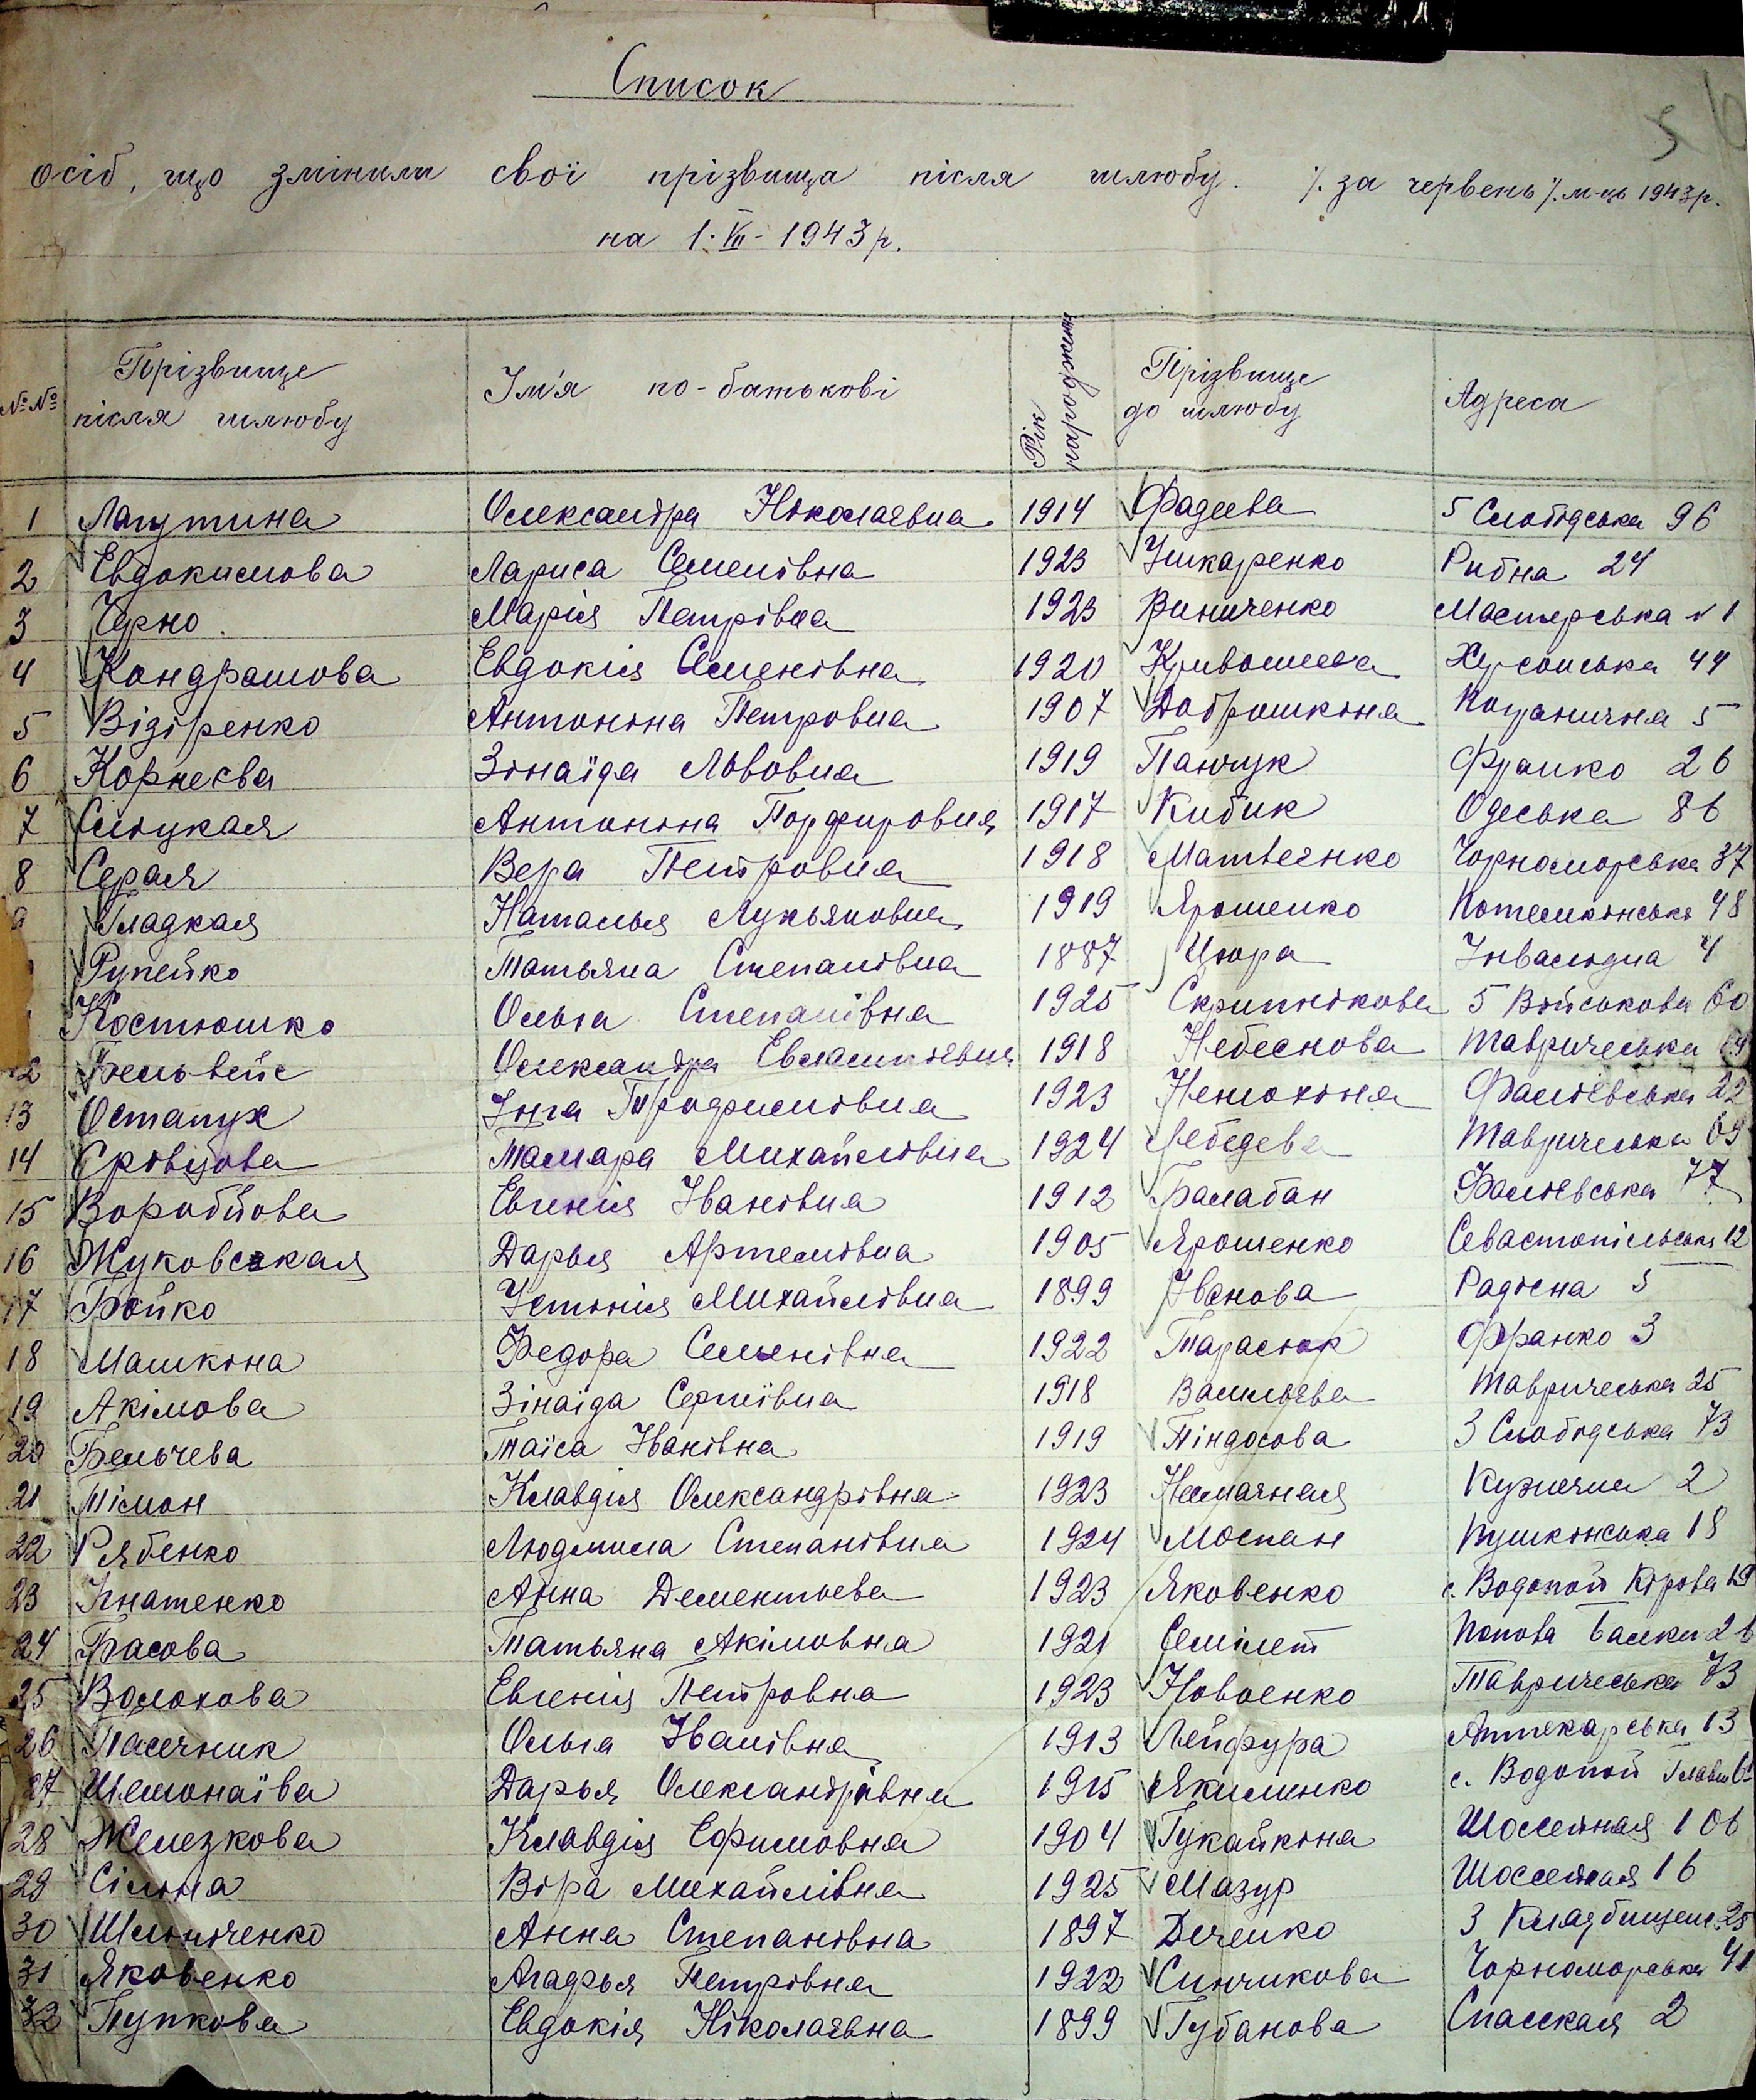 Список
осіб, що змінили свої прізвища після шлюбу. /. за червень /. м-ць 1943 р.
на 1. VII - 1943 р.
№ № Прізвище після шлюбу Ім'я по-батькові Рік народження Прізвище до шлюбу Адреса
1 Лагутина Олександра Ніколаєвна 1914 Фадеева 5 Слобідська 96
2 Евдокимова Лариса Семенівна 1923 Ушкаренко Рибна 24
3 Черно Марія Петрівна 1923 Виниченко Мастерська № 1
4 Кондрашова Евдокія Семенівна 1920 Кривошеева Херсонська 44
5 Відіренко Антоніна Петровна 1907 Добришкіна Погранична 5
6 Корнеєва Зінаїда Львовна 1919 Панчук Франко 26
7 Слюцкая Антоніна Порфировна 1917 Кибик Одеська 86
8 Серая Вера Петровна 1918 Матвеєнко Чорноморська 37
9 Гладкая Наталья Лукьяновна 1919 Ярошенко Потемкінська 48
Рупейко Татьяна Степанівна 1887 Цюра Інвалідна 4
Костюшко Ольга Степанівна 1925 Скрипнікова 5 Військова 60
2 Бельвейс Олександра 1918 Небеснова Тавричеська
13 Остапух Інга Трофимовна 1923 Фалієвська 22
14 Сківцова Тамара Михайлівна 1924 Лебедева Тавричеська 69
15 Воробйова Евгенія Іванівна 1912 Балабан Фалієвська 77
16 Жуковская Дарья Артемівна 1905 Ярошенко Севастопільська 12
17 Бойко Устинія Михайлівна 1899 Іванова Радісна 5
18 Машкіна Федора Семенівна 1922 Тарасюк Франко 3
19 Акімова Зінаїда Сергіївна 1918 Васильєва Тавричеська 25
20 Бельчева Таїса Іванівна 1919 Піндосова 3 Слобідська 73
21 Тімон Клавдія Олександрівна 1923 Невмачная Кузнечна 2
22 Рябенко Людмила Степанівна 1924 Моспан Пушкінська 18
23 Ігнатенко Анна Дементьева 1923 Яковенко с. Водопой Кірова 19
24 Басова Татьяна Акімовна 1921 Семілет Попова Балка 26
25 Волохова Евгенія Петровна 1923 Новоенко Тавричеська 73
26 Пасечник Ольга Іванівна 1913 Лейфура Аптекарська 13
27 Шемонаїва Дарья Олександрівна 1915 Якименко с. Водопой
28 Железкова Клавдія Ефимовна 1904 Гукайкіна Шоссейная 106
29 Сіліна Віра Михайлівна 1925 Мазур Шоссейная 16
30 Шлюпченко Анна Степанівна 1897 Деченко 3 Кладбищен. 25
31 Яковенко Агафья Петрівна 1922 Синчикова Чорноморська 41
32 Пупкова Евдокія Ніколаєвна 1899 Губанова Спасская 2